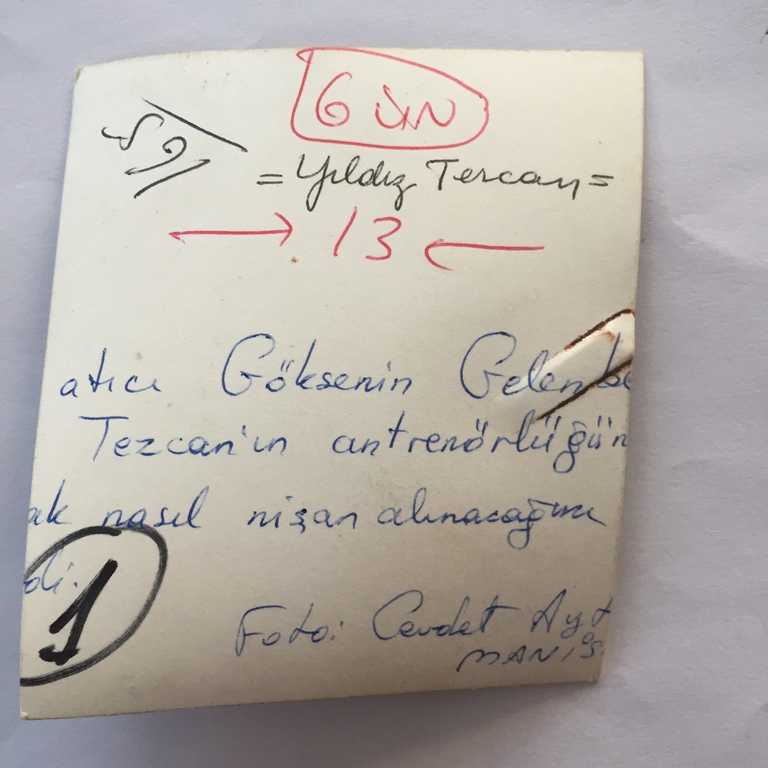 GÜN
= Yıldız Tezcan =
13
atıcı Göksenin Gelenbe
Tezcan'ın antrenörlüğün
ak nasıl nişan alınacağını
di.
1
Foto: Cevdet Ayt
MANİS